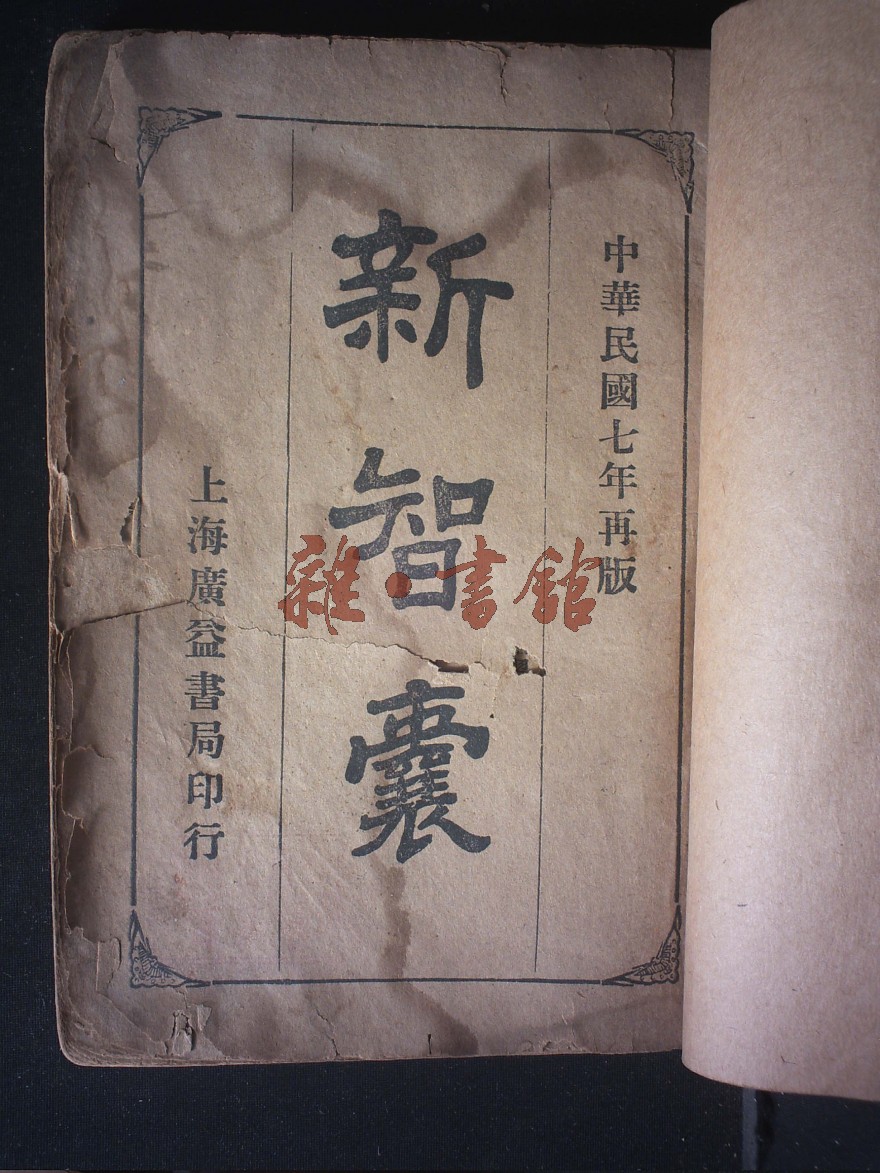 中華民國七年再版
新智囊
上海廣益書局印行
雜·書館